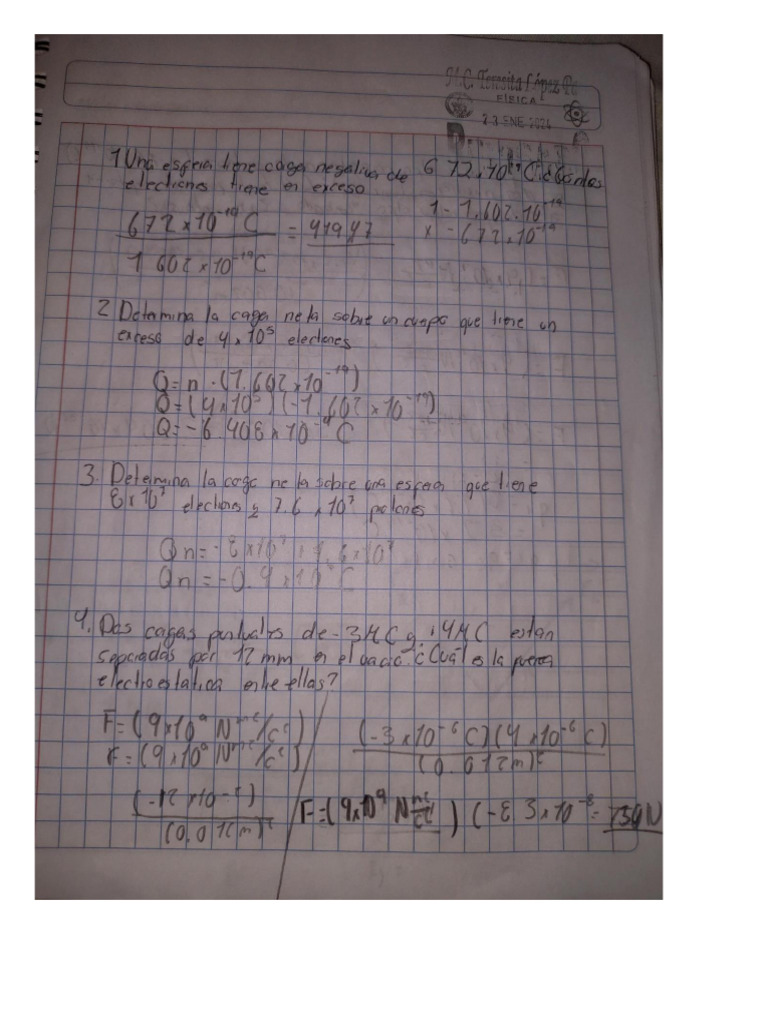 M.C. Teresita López
FÍSICA
23 ENE 2024
1 Una esfera tiene caga negativa de 6 72 x 10 C
electrones tiene en exceso
672 x 10⁻¹⁹ C = 419.47
1 602 x 10⁻¹⁹ C
1 - 1.602 . 10⁻¹⁹
x - 672 x 10⁻¹⁹
2 Determina la caga neta sobre un cuerpo que tiene un
exceso de 4 x 10⁵ electrones
Q = n · (1.602 x 10⁻¹⁹)
Q = (4 x 10⁵) (-1.602 x 10⁻¹⁹)
Q = - 6.408 x 10 C
3. Determina la caga neta sobre una esfera que tiene
8 x 10⁷ electrones y 7.6 x 10⁷ protones
Qn = - 8 x 10⁷ + 7.6 x 10⁷
Qn = - 0.4 x 10 C
4. Dos cagas puntuales de - 3 MC y 4 MC estan
separadas por 12 mm en el vacio. ¿Cuál es la fuerza
electroestatica entre ellas?
F = (9 x 10⁹ N m²/c²)
F = (9 x 10⁹ N m²/c²)
(-12 x 10)
(0.012 m)²
(-3 x 10⁻⁶ C) (4 x 10⁻⁶ C)
(0.012 m)²
F = (9 x 10⁹ N m²/C²) (-8 3 x 10⁻⁸ = 750 N